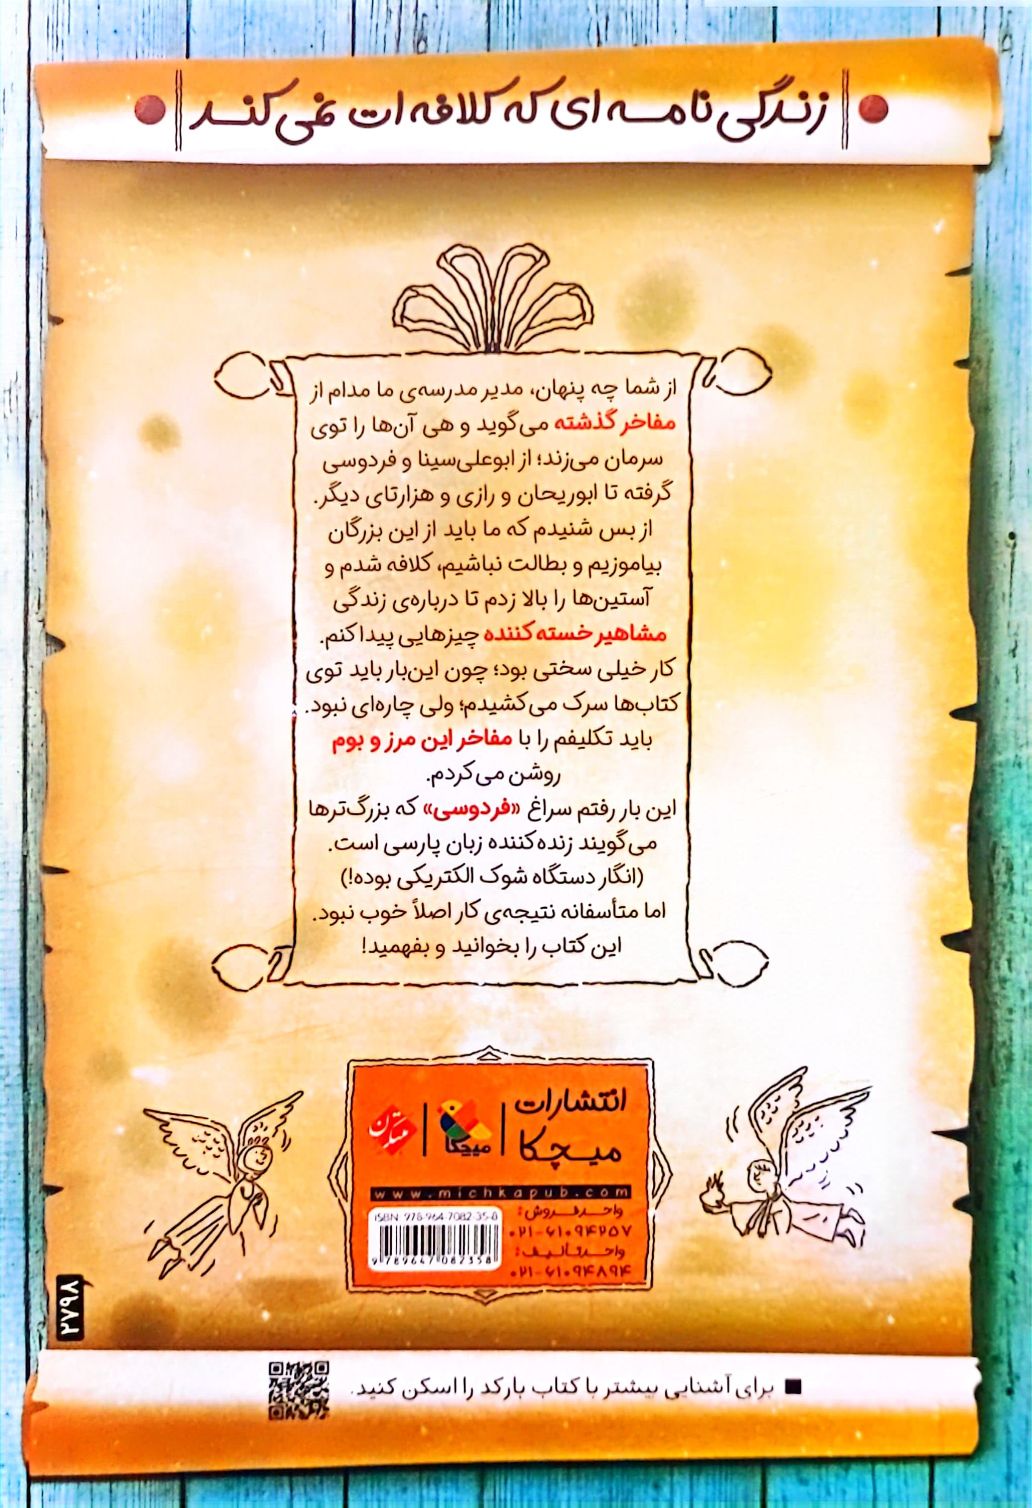 زندگی نامه ای که کلافه ات نمی کند
از شما چه پنهان، مدیر مدرسه‌ی ما مدام از
مفاخر گذشته می‌گوید و هی آن‌ها را توی
سرمان می‌زند؛ از ابوعلی‌سینا و فردوسی
گرفته تا ابوریحان و رازی و هزارتای دیگر.
از بس شنیدم که ما باید از این بزرگان
بیاموزیم و بطالت نباشیم، کلافه شدم و
آستین‌ها را بالا زدم تا درباره‌ی زندگی
مشاهیر خسته‌کننده چیزهایی پیدا کنم.
کار خیلی سختی بود؛ چون این‌بار باید توی
کتاب‌ها سرک می‌کشیدم؛ ولی چاره‌ای نبود.
باید تکلیفم را با مفاخر این مرز و بوم
روشن می‌کردم.
این بار رفتم سراغ «فردوسی» که بزرگ‌ترها
می‌گویند زنده‌کننده زبان پارسی است.
(انگار دستگاه شوک الکتریکی بوده!)
اما متأسفانه نتیجه‌ی کار اصلاً خوب نبود.
این کتاب را بخوانید و بفهمید!
انتشارات
میچکا
میچکا
مبتکران
www.michkapub.com
ISBN: 978-964-7082-35-8
9 789647 082358
واحد فروش:
۰۲۱-۶۱۰۹۴۲۵۷
واحد تألیف:
۰۲۱-۶۱۰۹۴۸۹۴
۲۷۹۸
برای آشنایی بیشتر با کتاب بارکد را اسکن کنید.